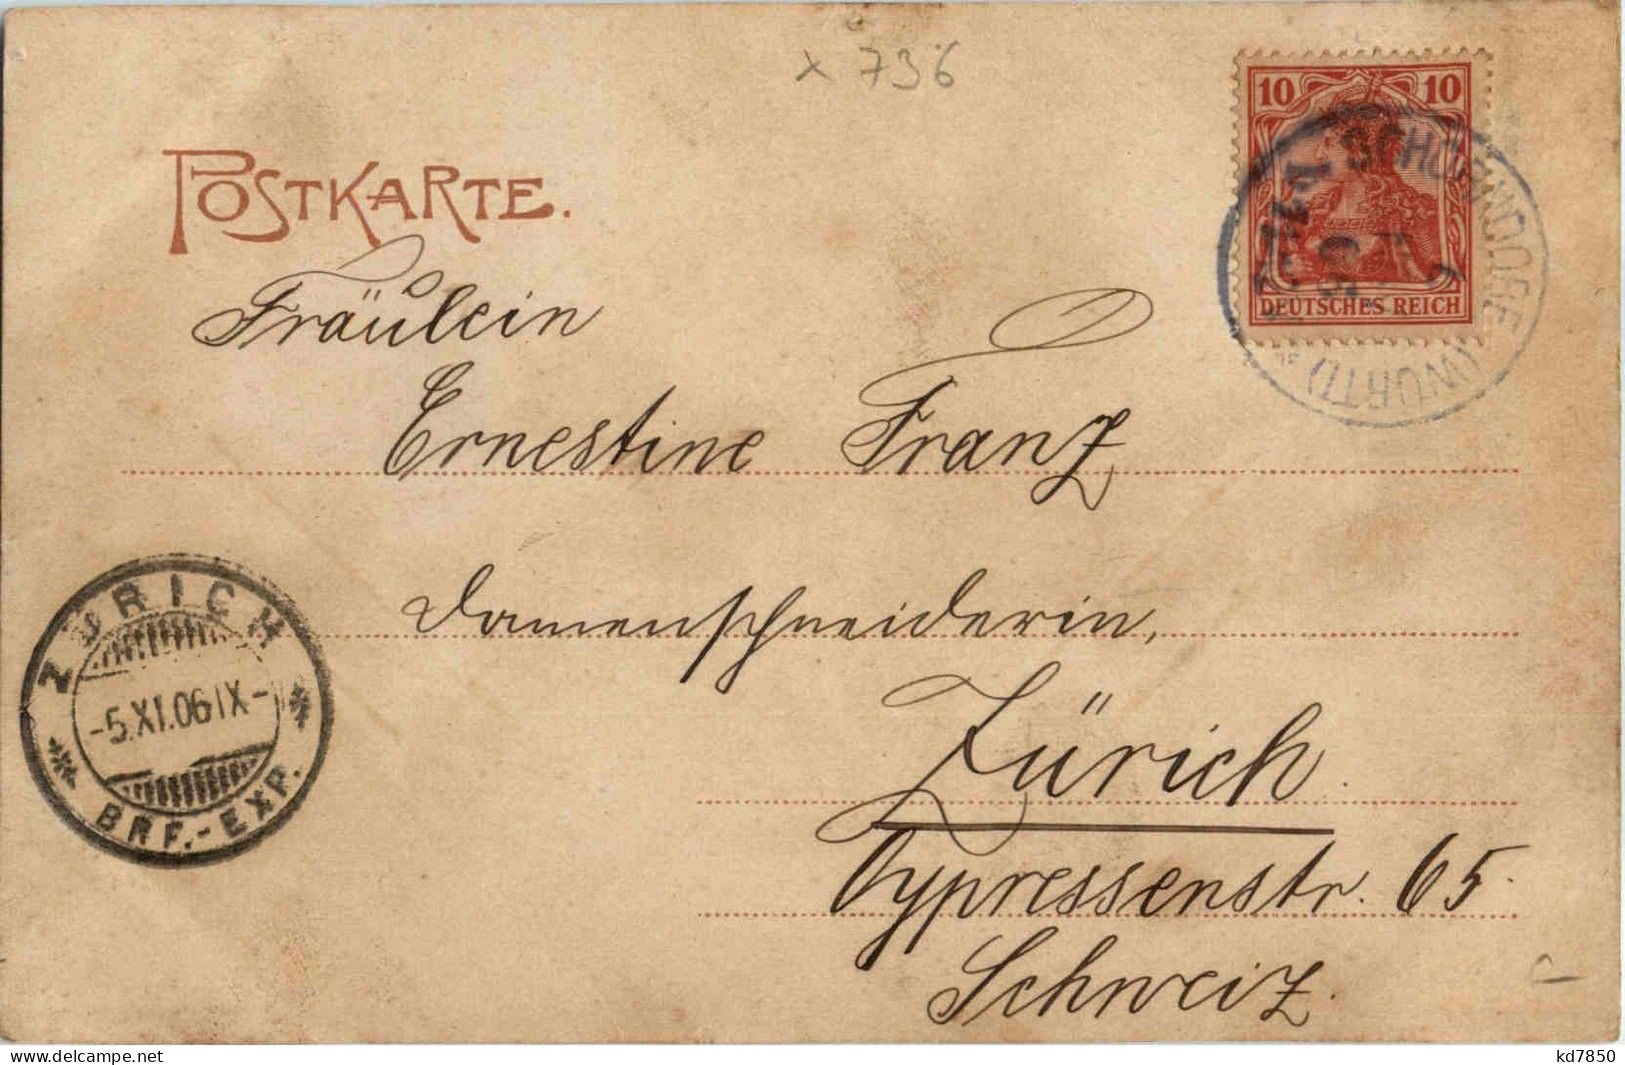 x 736
POSTKARTE.
10 10
DEUTSCHES REICH
SCHORNDORF
(WÜRTT)
Fräulein
Ernestine Franz
Damenschneiderin,
Zürich.
Cypressenstr. 65.
Schweiz.
ZÜRICH
-5.XI.06.IX-
BRF.-EXP.
www.delcampe.net
kd7850